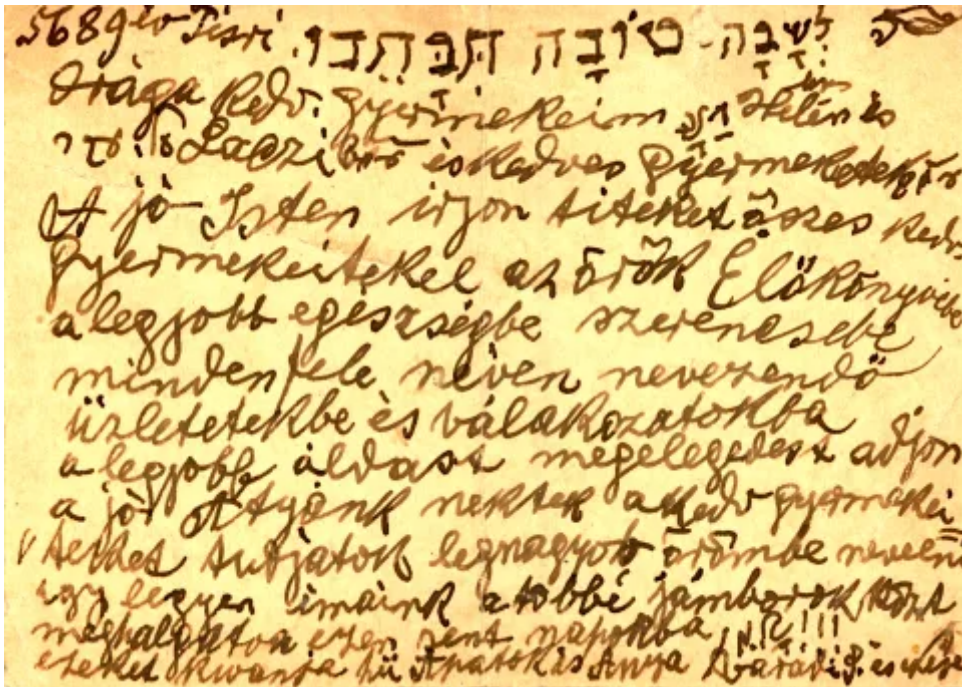 5689 év Tisri לשנה טובה תכתבו
Drága kedv. Gyermekeim Helén és
Laczi és kedves Gyermeketek
A jó Isten irjon titeket összes kedv
gyermekeitekel az örök Élökönyvibe
a legjobb egészségbe szerencsebe
mindenfele néven nevezendö
üzletetekbe és válakozatokba
a legjobb áldast megelegedest adjon
a jó Atyánk nektek a kedv gyermekei
teket tudjatok legnagyob örömbe nevelni
ugy legyen imáink a többé jámborok közt
meghalgatva ezen szent napokba אמן !!!
ezeket kivanja hü Apatok és Anya